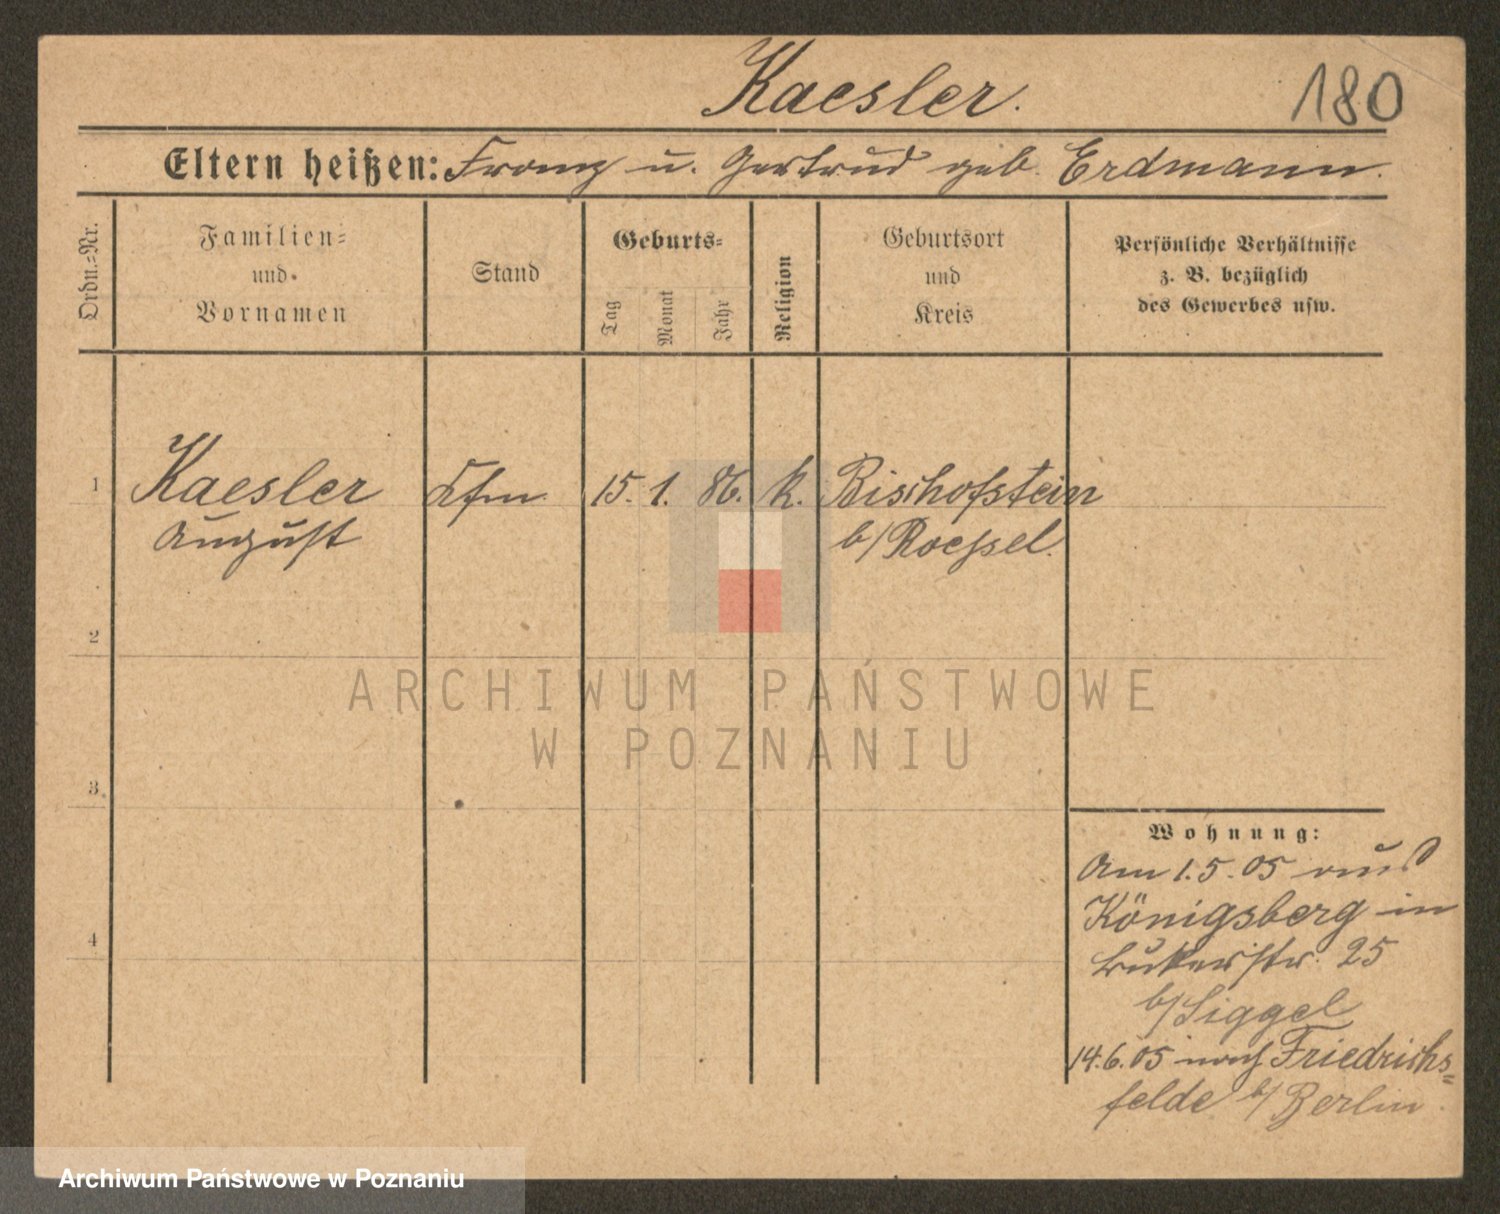 Kaesler.
180
Eltern heißen: Franz u. Gertrud geb. Erdmann.
Ordn.=Nr.
Familien=
und
Vornamen
Stand
Geburts=
Tag
Monat
Jahr
Religion
Geburtsort
und
Kreis
Persönliche Verhältnisse
z. B. bezüglich
des Gewerbes usw.
1
Kaesler
August
Kfm.
15. 1. 86.
k.
Bischofstein
b/Roessel.
2
ARCHIWUM PAŃSTWOWE
W POZNANIU
3
4
Wohnung:
Am 1.5.05 aus
Königsberg in
25
b/Siggel
14.6.05 nach Friedrichs=
felde b/Berlin.
Archiwum Państwowe w Poznaniu